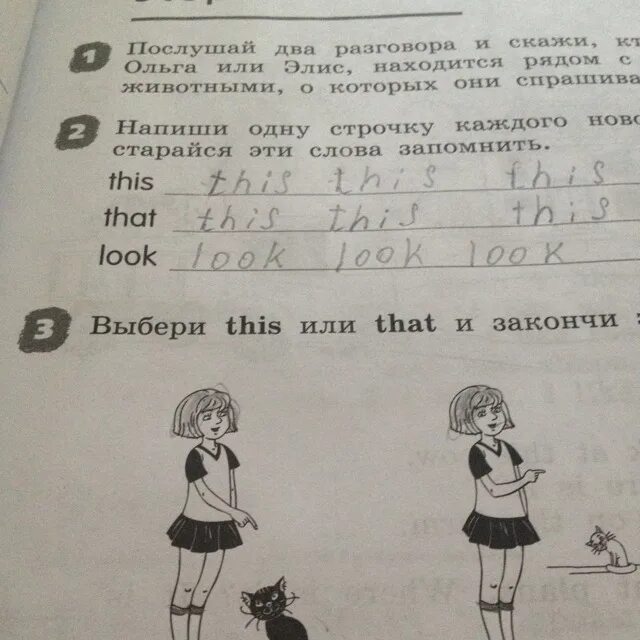 1 Послушай два разговора и скажи,
Ольга или Элис, находится рядом с
животными, о которых они
2 Напиши одну строчку каждого
старайся эти слова запомнить.
this this this this
that this this this
look look look look
3 Выбери this или that и закончи